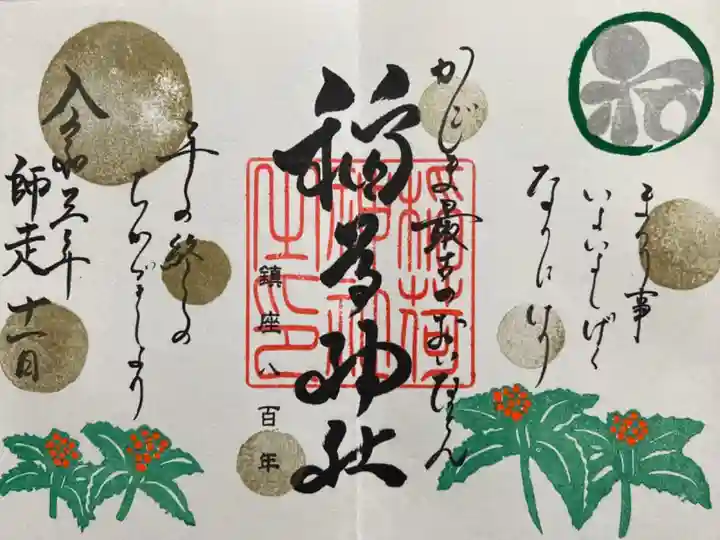 まつり事
いよいよしげく
なりにけり
かごしま最古のおいなりさん
稲荷神社
稲荷神社之印
鎮座八百年
年の終の
ちかづきしより
令和三年
師走十一日